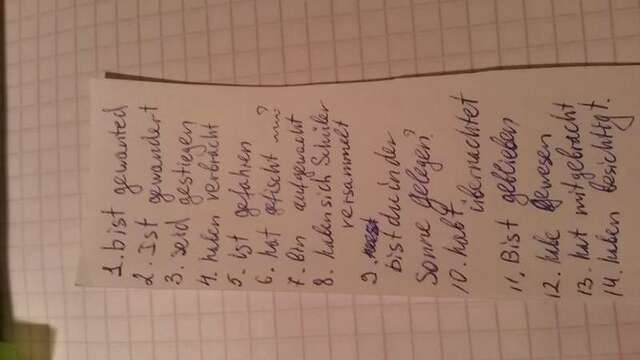 1. bist gewanted
2. Ist gewandert
3. seid gestiegen
4. haben verbracht
5. ist gefahren
6. hat gefischt
7. Bin aufgewacht
8. haben sich Schüler
versammelt
9.
bist du in der
Sonne gelegen?
10. habt
übernachtet
11. Bist geblieben
12. habe gewesen
13. hat mitgebracht
14. haben besichtigt.